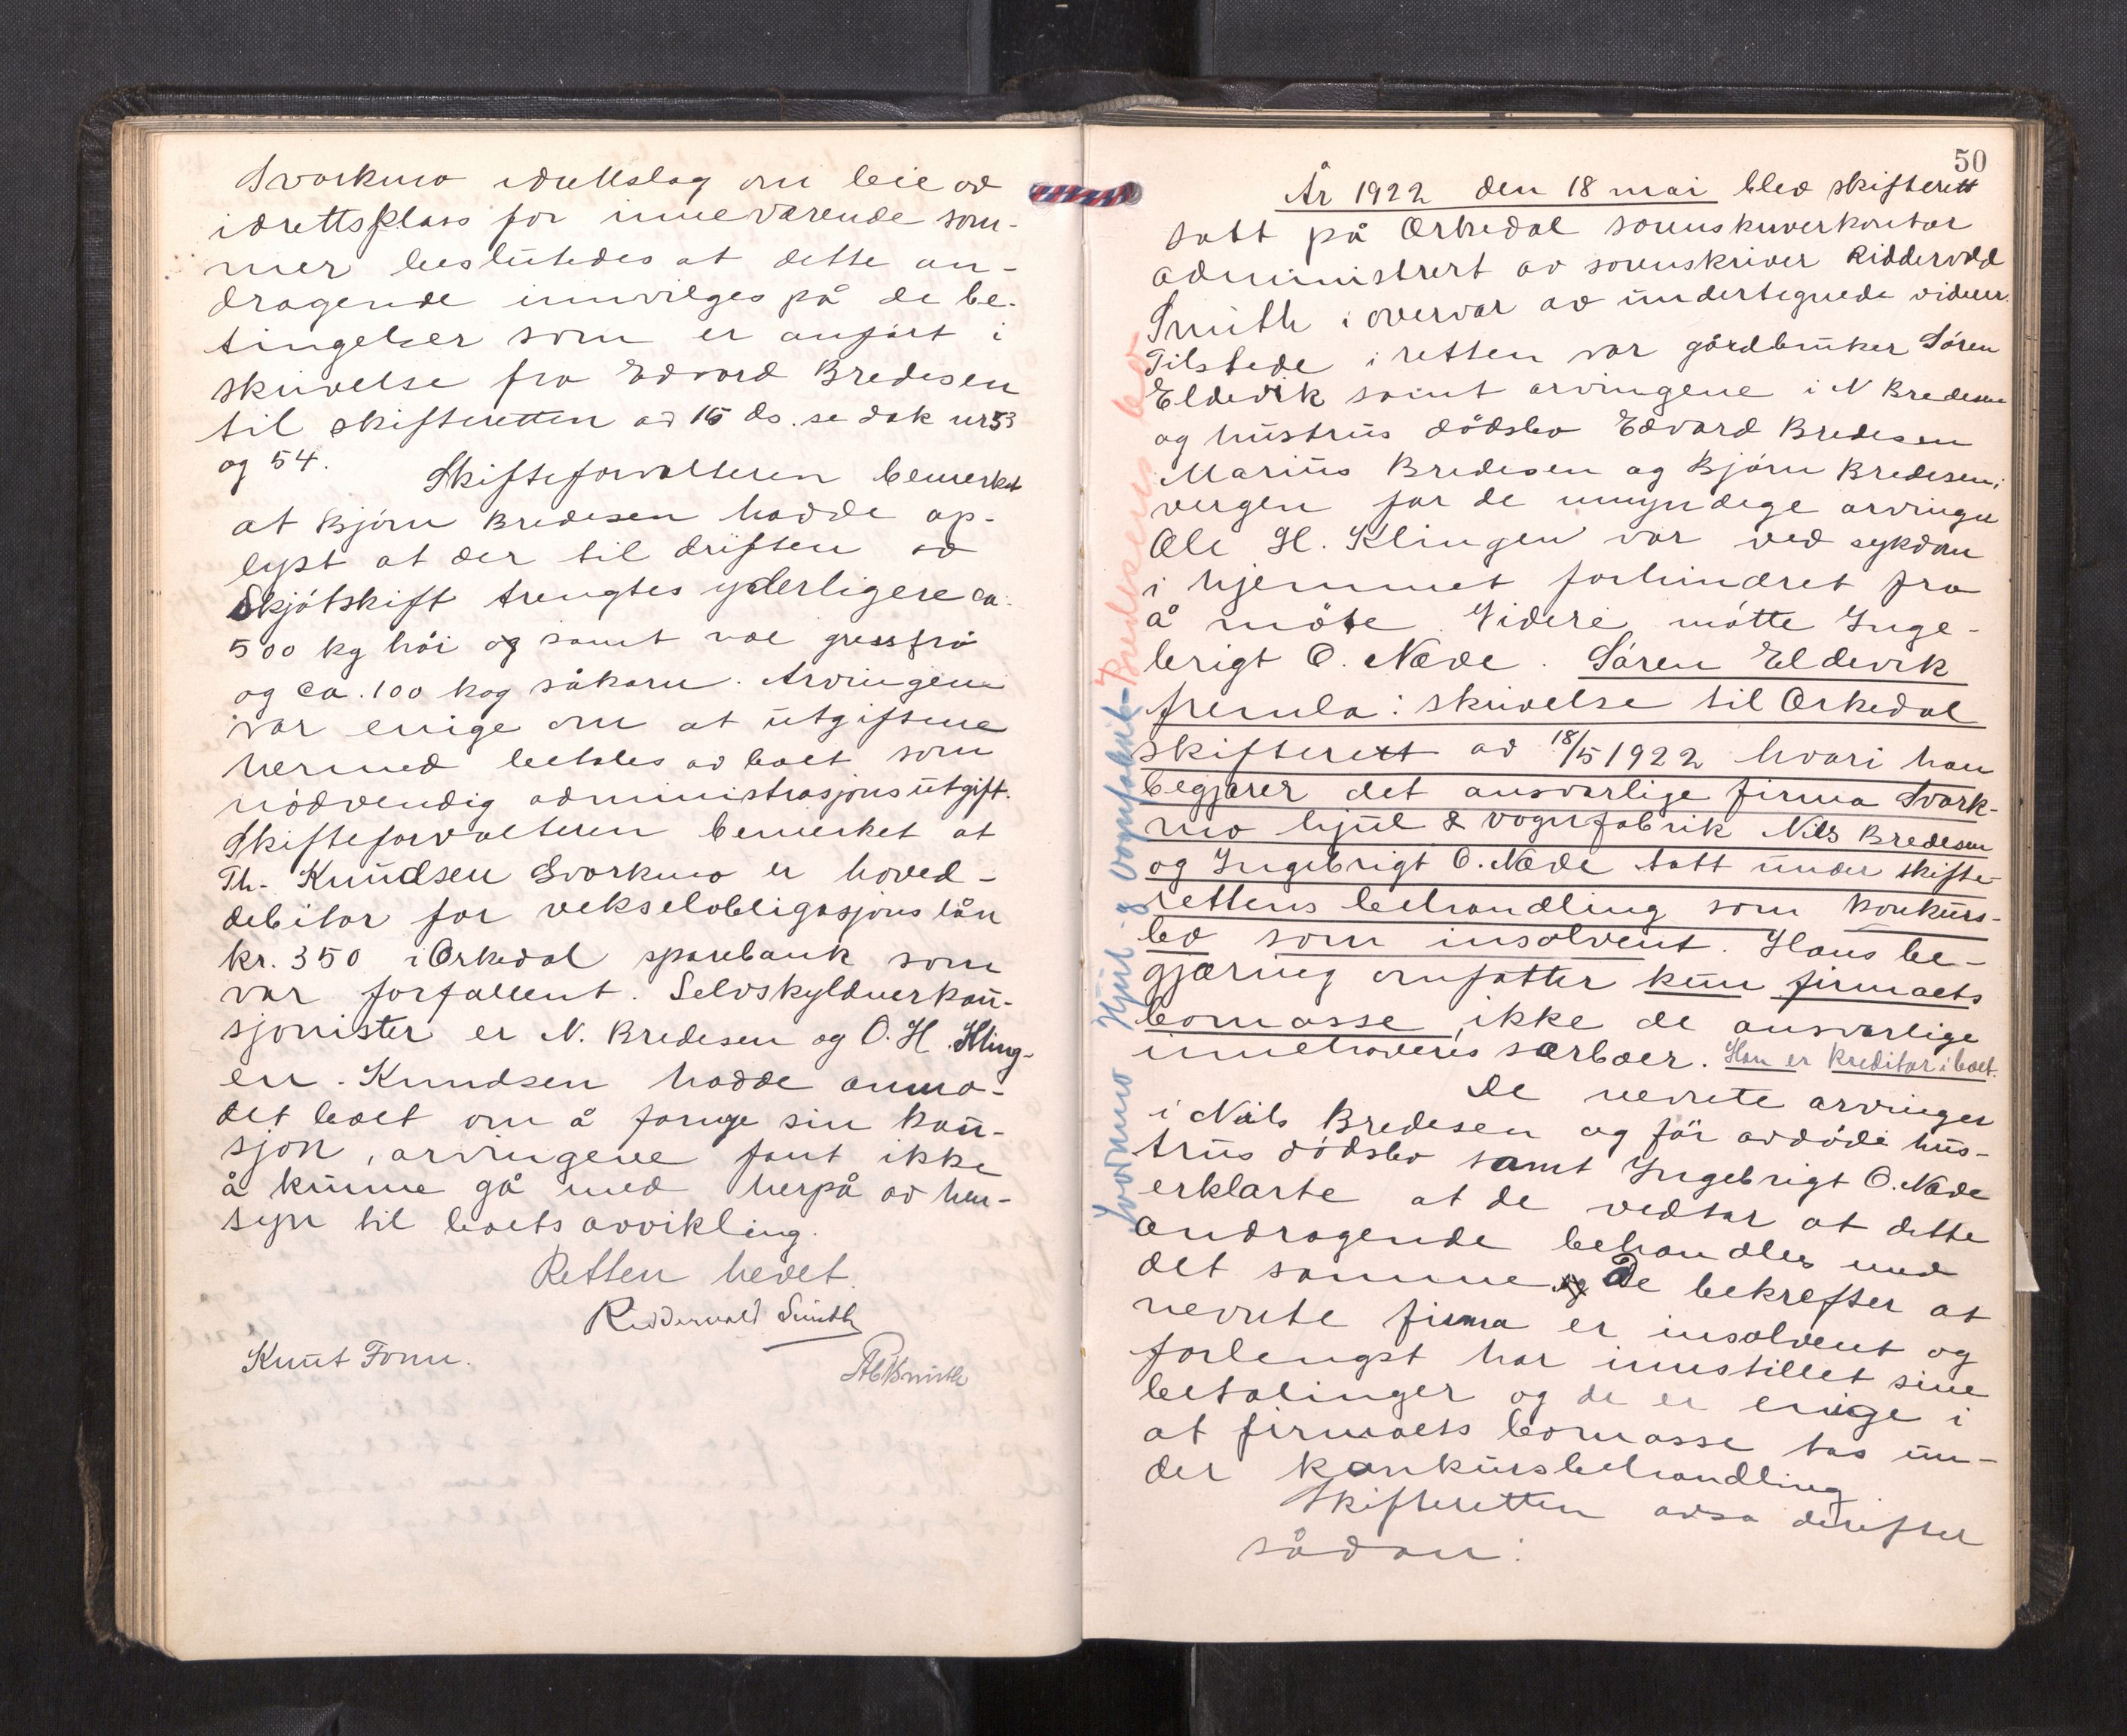 Svorkmo idrettslag om leie av
idrettsplass for inneværende som-
mer beslutedes at dette an-
dragende innvilges på de be-
tingelser som er anfört i
skrivelse fra Edvard Bredesen
til skifteretten av 15 ds. se dok nr 53
og 54.
Skifteforvalteren bemerket
at Bjórn Bredesen hadde op-
lyst at der til driften av
Skjótskift trengtes yderligere ca.
500 kg hói og samt noe gressfró
og ca. 100 kog såkorn. Arvingene
var enige om at utgiftene
hermed betales av boet som
nödvendig administrasjonsutgift.
Skifteforvalteren bemerket at
Th. Knudsen Svorkmo er hoved-
debitor for vekselobligasjonslån
kr. 350 i Orkedal sparebank som
var forfallent. Selvskyldnerkau-
sjonister er N. Bredesen og O. H. Kling-
en. Knudsen hadde anmo-
det boet om å fornye sin kau-
sjon, arvingene fant ikke
å kunne gå med herpå av hen-
syn til boets avvikling.
Retten hevet.
Riddervold Smith
Knut Fonn.
50
År 1922 den 18 mai blev skifterett
satt på Orkedal sorenskriverkontor
administrert av sorenskriver Riddervold
Smith i overvær av undertegnede vidner.
Tilstede i retten var gårdbruker Sóren
Eldevik samt arvingene i N Bredesen
og hustrus dódsbo Edvard Bredesen
Marius Bredesen og Bjórn Bredesen;
vergen for de umyndige arvinger
Ole H. Klingen var ved sykdom
i hjemmet forhindret fra
å móte. Videre mótte Inge-
brigt O. Næve. Sóren Eldevik
fremla: skrivelse til Orkedal
skifterett av 18/5 1922 hvori han
begjærer det ansvarlige firma Svork-
mo hjul & vognfabrik Nils Bredesen
og Ingebrigt O. Næve tatt under skifte-
rettens behandling som konkurs-
bo som insolvent. Hans be-
gjæring omfatter kun firmaets
bomasse, ikke de ansvarlige
innehaveres særboer. Han er kreditor i boet.
De nevnte arvinger
i Nils Bredesen og fór avdóde hus-
trus dódsbo samt Ingebrigt O. Næve
erklærte at de vedtar at dette
andragende behandles med
det samme og De bekrefter at
nevnte firma er insolvent og
forlengst har innstillet sine
betalinger og de er enige i
at firmaets bomasse tas un-
der konkursbehandling
Skifteretten avsa derefter
sådan:
Svorkmo Hjul- & vognfabrik-Bredesens bo